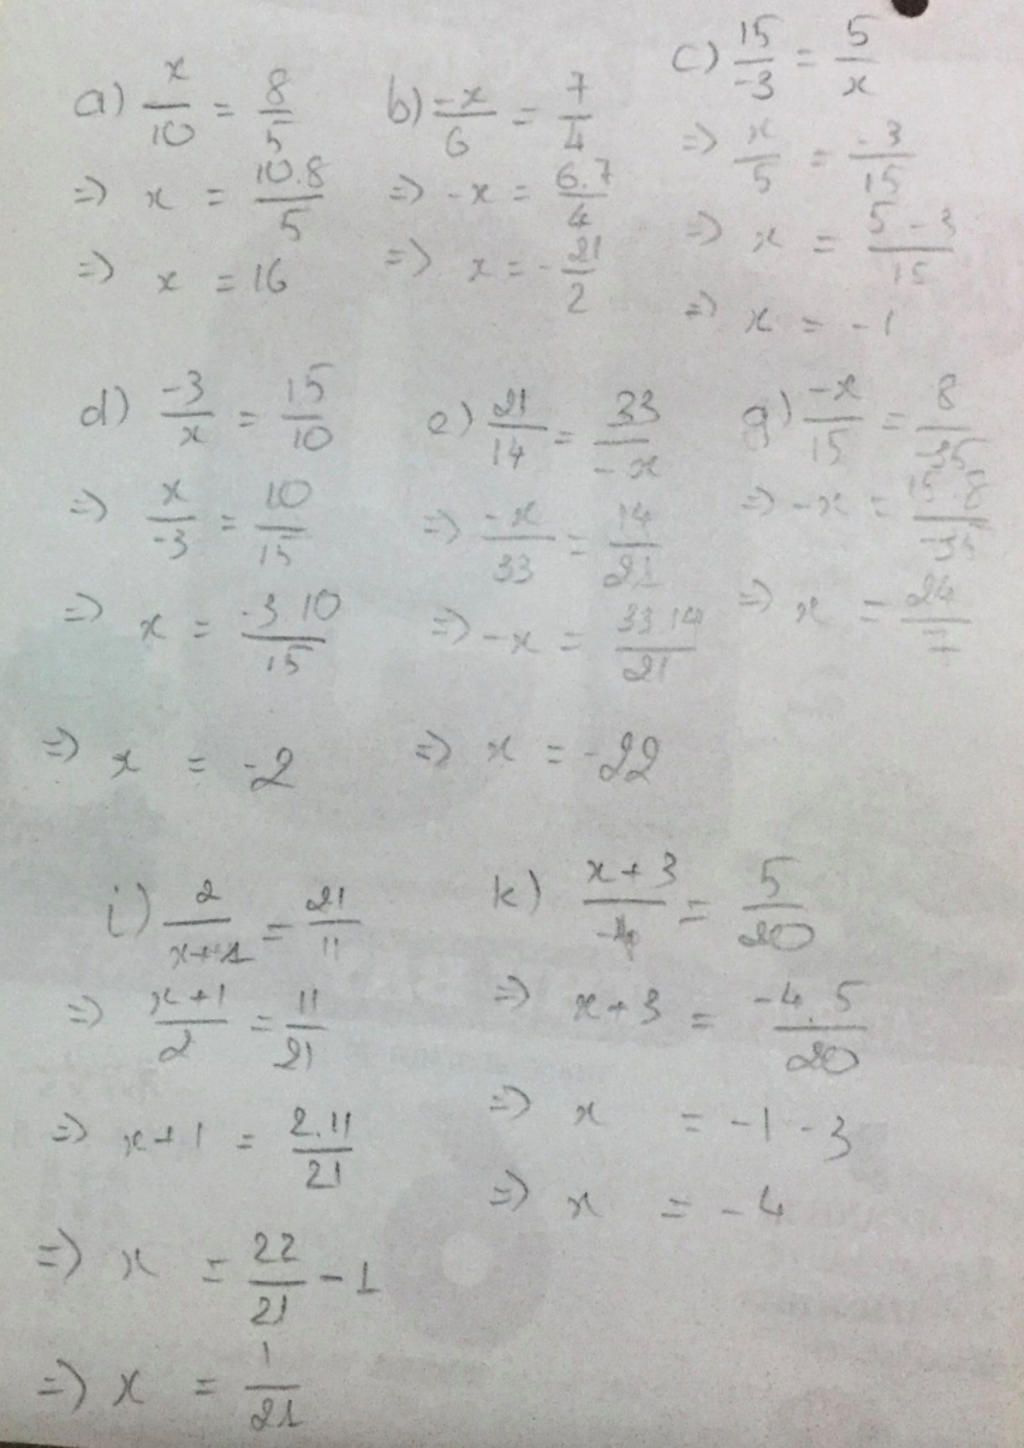 a) x/10 = 8/5
=> x = 10.8/5
=> x = 16
b) -x/6 = 7/4
=> -x = 6.7/4
=> x = -21/2
c) 15/-3 = 5/x
=> x/5 = -3/15
=> x = 5-3/15
=> x = -1
d) -3/x = 15/10
=> x/-3 = 10/15
=> x = -3.10/15
=> x = -2
e) 21/14 = 33/-x
=> -x/33 = 14/21
=> -x = 33.14/21
=> x = -22
g) -x/15 = 8/-35
=> -x = 15.8/-35
=> x = 24/7
i) 2/x+1 = 21/11
=> x+1/2 = 11/21
=> x+1 = 2.11/21
=> x = 22/21 - 1
=> x = 1/21
k) x+3/-4 = 5/20
=> x+3 = -4.5/20
=> x = -1 - 3
=> x = -4